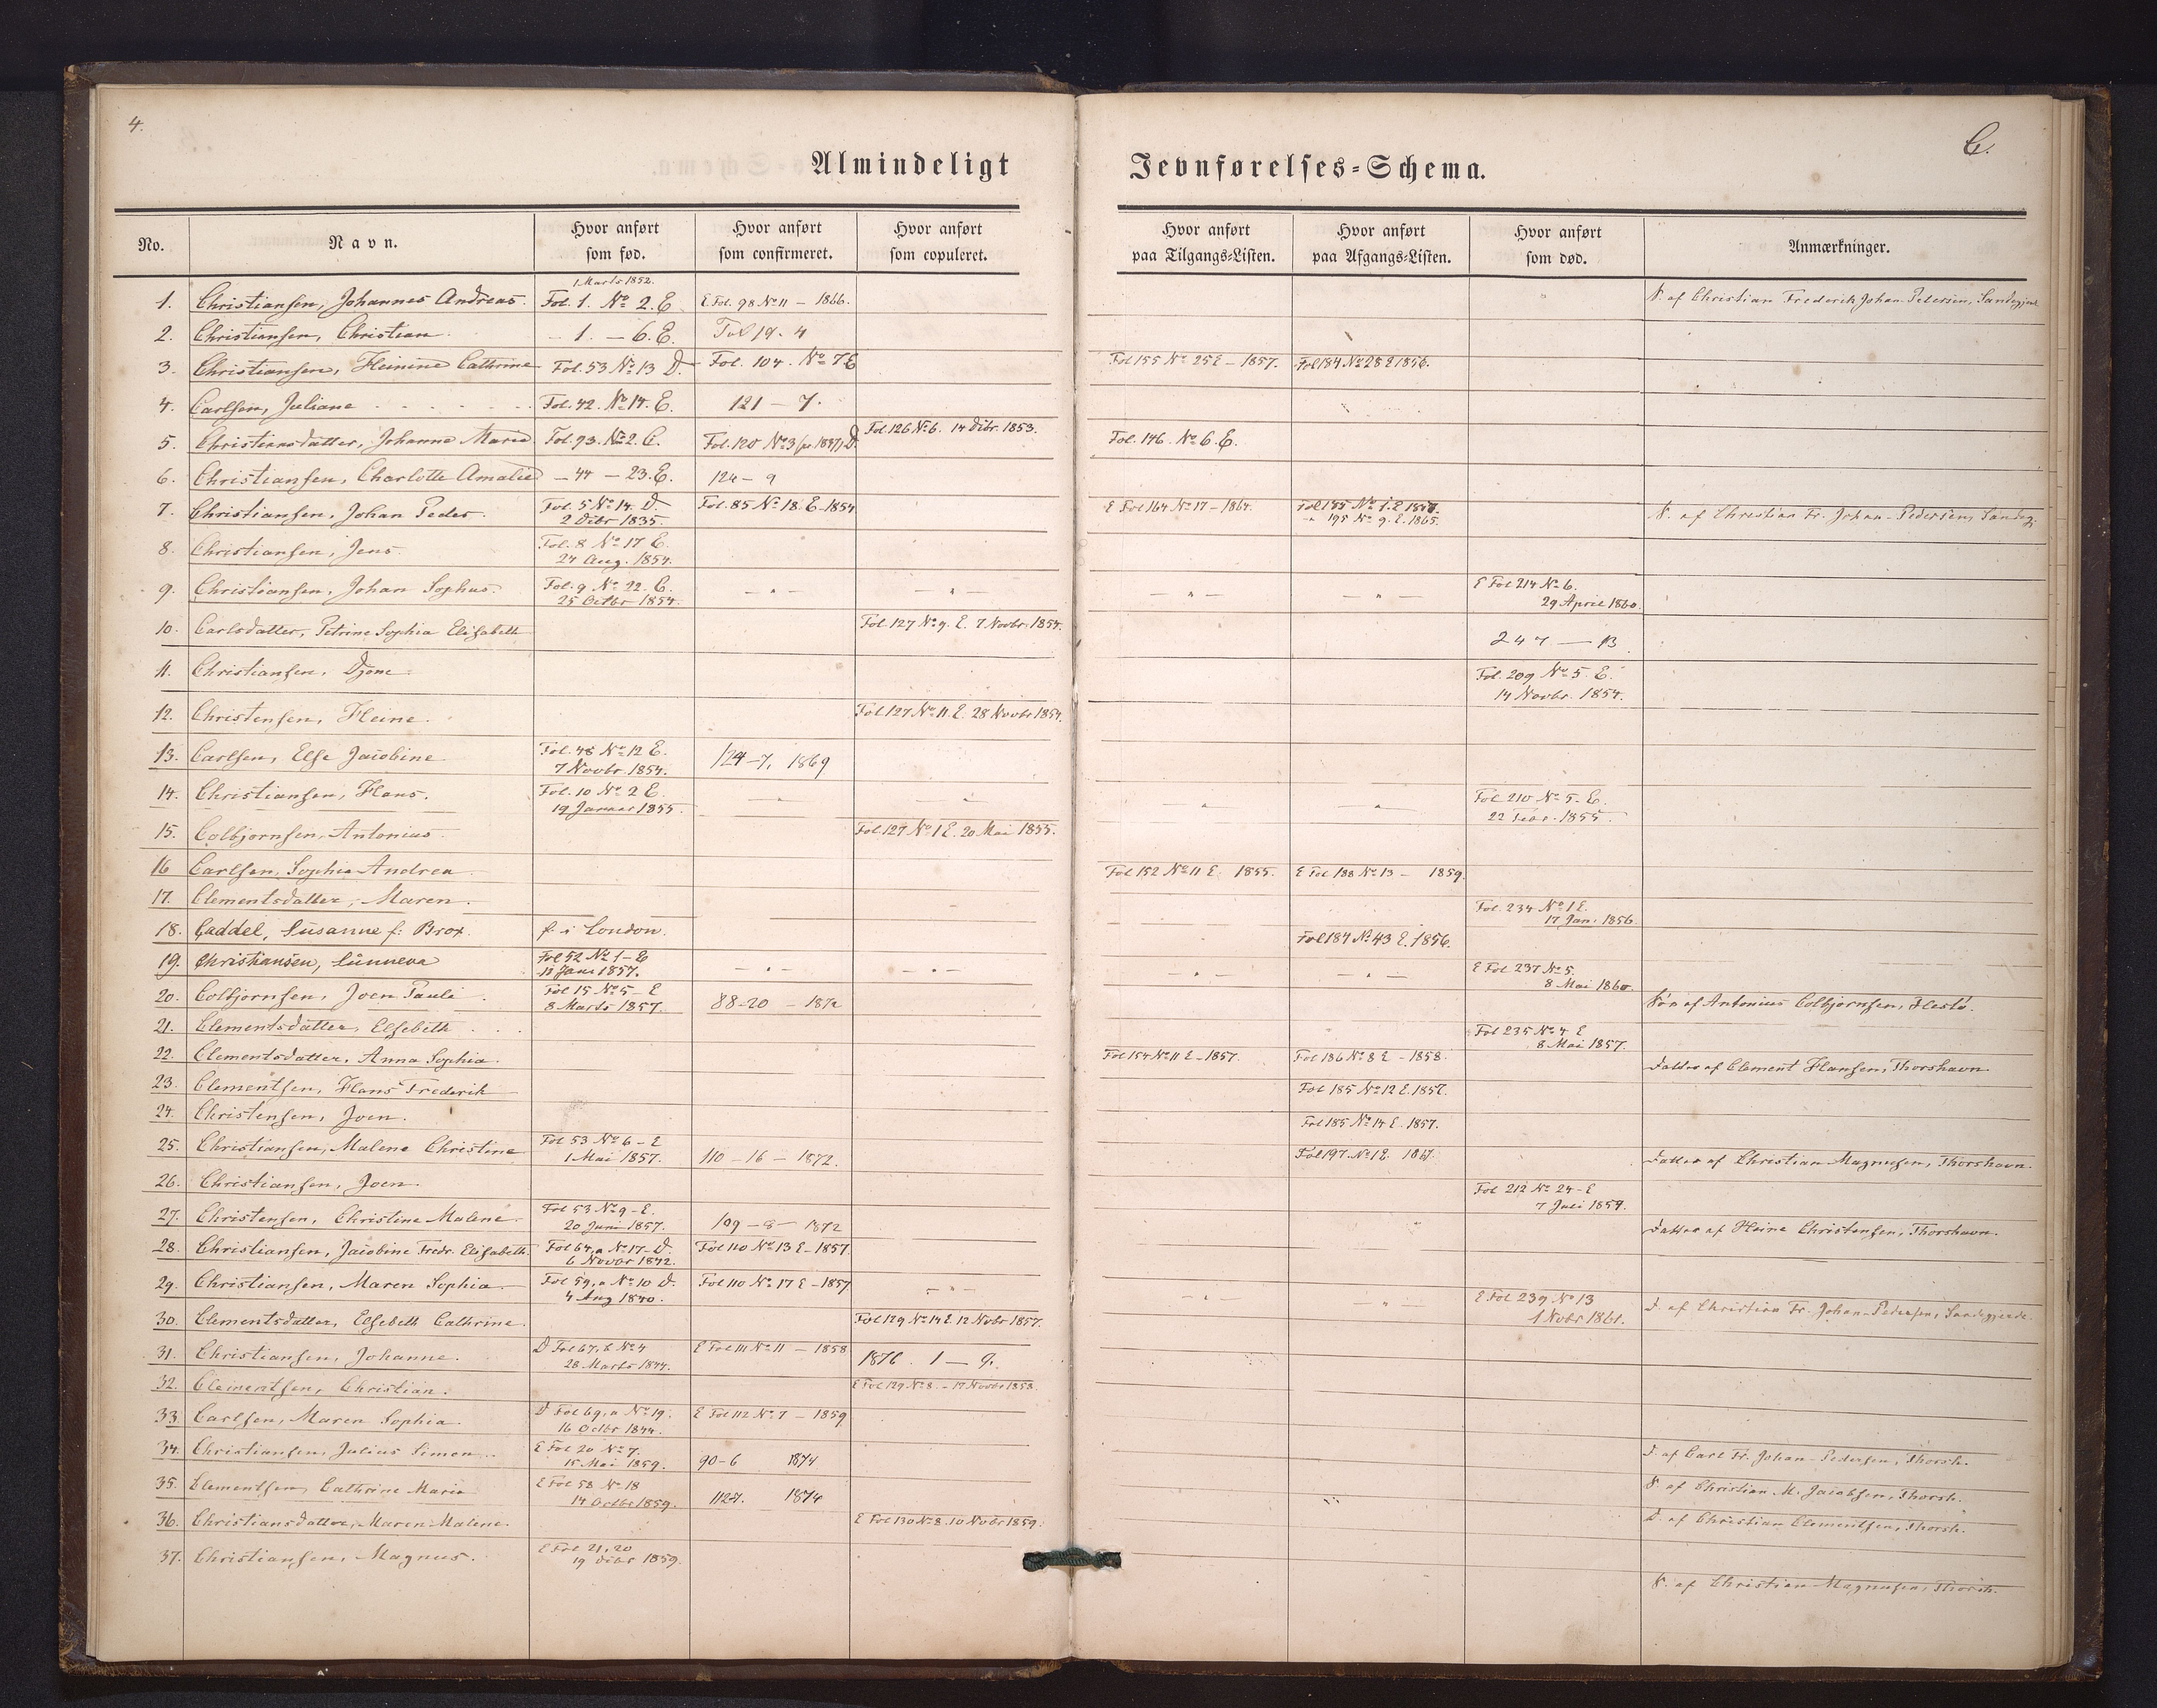 4.
C.
Almindeligt Jevnførelses-Schema.
No. Navn. Hvor anført som fød. Hvor anført som confirmeret. Hvor anført som copuleret. Hvor anført paa Tilgangs-Listen. Hvor anført paa Afgangs-Listen. Hvor anført som død. Anmærkninger.
1 Marts 1852.
1. Christiansen, Johannes Andreas. Fol. 1. No 2. E E Fol. 98 No 11 – 1866. S. af Christian Frederik Johan-Petersen, Sandegjerde
2. Christiansen, Christian. – 1. – 6. E. Fol 19. 4
3. Christiansen, Heinine Cathrine Fol. 53 No 13 D. Fol. 104. No 7 E Fol 155 No 25 E – 1857. Fol 184 No 28 E 1856.
4. Carlsen, Juliane . . . . . Fol. 42. No 14. E. 121 – 7.
5. Christiansdatter, Johanne Marie Fol. 93. No 2. C. Fol. 120 No 3 D. Fol. 126 No 6. 14 Dcbr. 1853. Fol. 146. No 6. E.
6. Christiansen, Charlotte Amalie – 44 – 23. E. 124 – 9
7. Christiansen, Johan Peder. Fol. 5 No 14. D. Fol. 85 No 18. E – 1854 E Fol 164 No 17 – 1864. S. af Christian Fr. Johan-Pedersen, Sandegj.
2 Dcbr 1835. – 195 No 9. E. 1865.
8. Christiansen, Jens. Fol. 8 No 17 E.
24 Aug. 1854.
9. Christiansen, Johan Sophus. Fol. 9 No 22. E. – " – – " – – " – – " – E Fol 214 No 6.
25 Octbr 1854. 29 April 1860.
10. Carlsdatter, Petrine Sophia Elisabeth Fol 127 No 9. E. 7 Novbr. 1854. 247 — 13
11. Christiansen, Djone Fol. 209 No 5. E.
14 Novbr. 1854.
12. Christensen, Heine. Fol 127 No 11. E. 28 Novbr 1854.
13. Carlsen, Else Jacobine Fol. 48 No 12 E. 124 – 7. 1869
7 Novbr 1854.
14. Christiansen, Hans. Fol. 10 No 2 E. – " – – " – – " – – " – Fol 210 No 5. E.
19 Januar 1855. 22 Febr. 1855
15. Colbjørnsen, Antonius. Fol 127 No 1 E. 20 Mai 1855.
16 Carlsen, Sophia Andrea Fol 152 No 11 E. 1855. E Fol 188 No 13 – 1859.
17. Clementsdatter, Maren. Fol. 234 No 1 E.
17 Jan. 1856.
18. Caddel, Susanne f: Brox. f. i London. Fol 184 No 43 E. 1856.
19. Christiansen, Sunneva Fol 52 No 1 – E – " – – " – – " – – " – E Fol 237 No 5.
18 Jan. 1857. 8 Mai 1860.
20. Colbjørnsen, Joen Pauli. Fol 15 No 5 – E 88 – 20 – 1872 Søn af Antonius Colbjørnsen, Hestø.
8 Marts 1857.
21. Clementsdatter, Elsebeth . . . Fol 235 No 4 E
8 Mai 1857.
22. Clementsdatter, Anna Sophia. Fol 154 No 11 E – 1857. Fol 186 No 8 E – 1858. Datter af Clement Hansen, Thorshavn.
23. Clementsen, Hans Frederik Fol 185 No 12 E. 1857.
24. Christensen, Joen. Fol 185 No 14 E. 1857.
25. Christiansen, Malene Christine Fol 53 No 6 – E 110 – 16 – 1872. Fol 197. No 1 E. 1867. Datter af Christian Magnusen, Thorshavn.
1 Mai 1857.
26. Christiansen, Joen. Fol 212 No 24 – E
7 Juli 1857.
27. Christensen, Christine Malene. Fol 53 No 9 – E. 109 – 8 – 1872 Datter af Heine Christensen, Thorshavn.
20 Juni 1857.
28. Christiansen, Jacobine Fredr. Elisabeth. Fol 64, a No 17 – D. Fol 110 No 13 E – 1857.
6 Novbr 1842.
29. Christiansen, Maren Sophia Fol 59, a No 10 D. Fol 110 No 17 E – 1857 – " – – " – – " – E Fol 239. No 13 D. af Christian Fr. Johan-Pedersen, Sandegjerde.
4 Aug 1840. 1 Nvbr 1861.
30. Clementsdatter, Elsebeth Cathrine. Fol 129 No 14 E. 12 Nvbr 1857.
31. Christiansen, Johanne. D Fol 67, b No 4 E Fol 111 No 11 – 1858 1876. 1 — 9.
28 Marts 1844.
32. Clementsen, Christian. E Fol 129 No 8. – 17 Novbr 1858.
33. Carlsen, Maren Sophia. D Fol 69, a No 19. E Fol 112 No 7 – 1859 D. af Carl Fr. Johan-Pedersen, Thorsh.
16 Octbr 1844.
34. Christiansen, Julius Simon. E Fol 20 No 7. 90 – 6 1874 S. af Christian M. Jacobsen, Thorsh.
15 Mai 1859.
35. Clementsen, Cathrine Marie E Fol 58 No 18 112-7. 1874 D. af Christian Clementsen, Thorsh.
14 Octbr 1859.
36. Christiansdatter, Maren Malene. E Fol 130 No 8. 10 Novbr 1859.
37. Christiansen, Magnus. E Fol 21, 20 S. af Christian Magnusen, Thorsh.
19 Dcbr 1859.